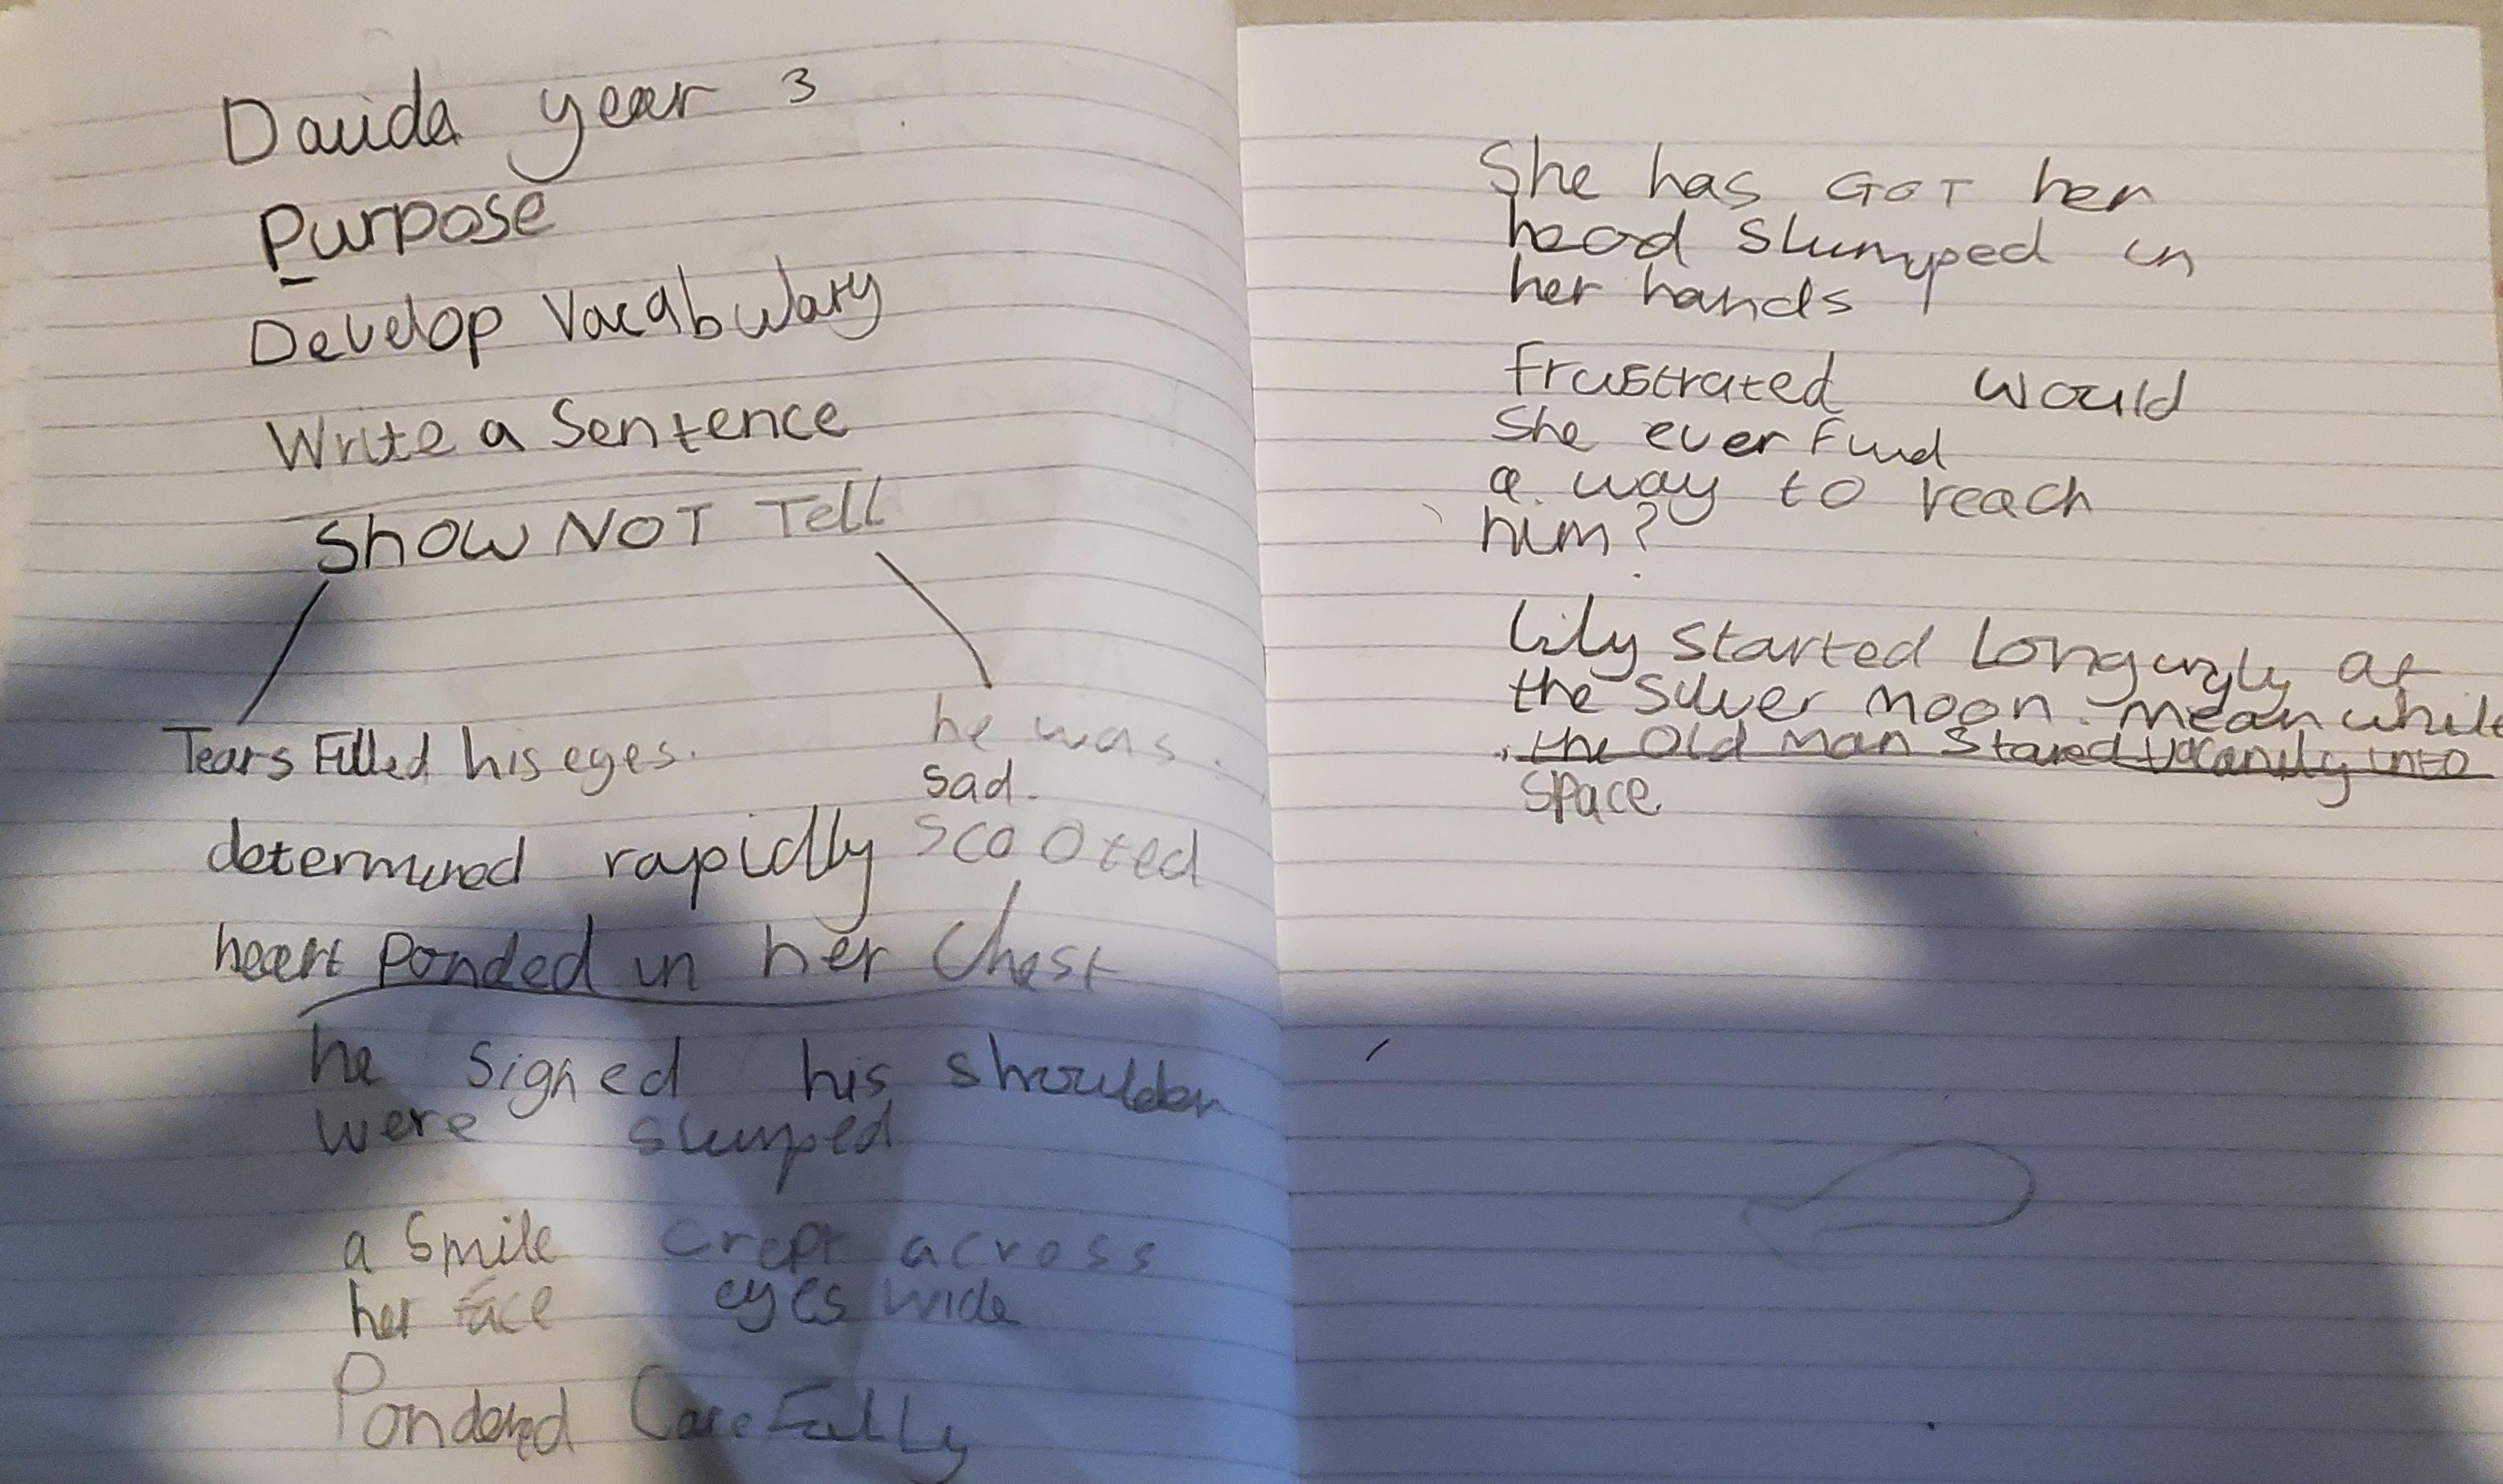 Davida year 3
Purpose
Develop Vocabulary
Write a Sentence
Show NOT Tell
Tears Filled his eyes.
he was
sad.
determined rapidly scooted
heart Ponded in her Chest
he signed his shoulder
were slumped
a smile crept across
her face eyes wide
Pondered Carefully
She has GOT her
head slumped in
her hands
frustrated would
she ever find
a way to reach
him?
Lily started Longingly at
the silver moon. Meanwhile
the Old man stared vacantly into
space